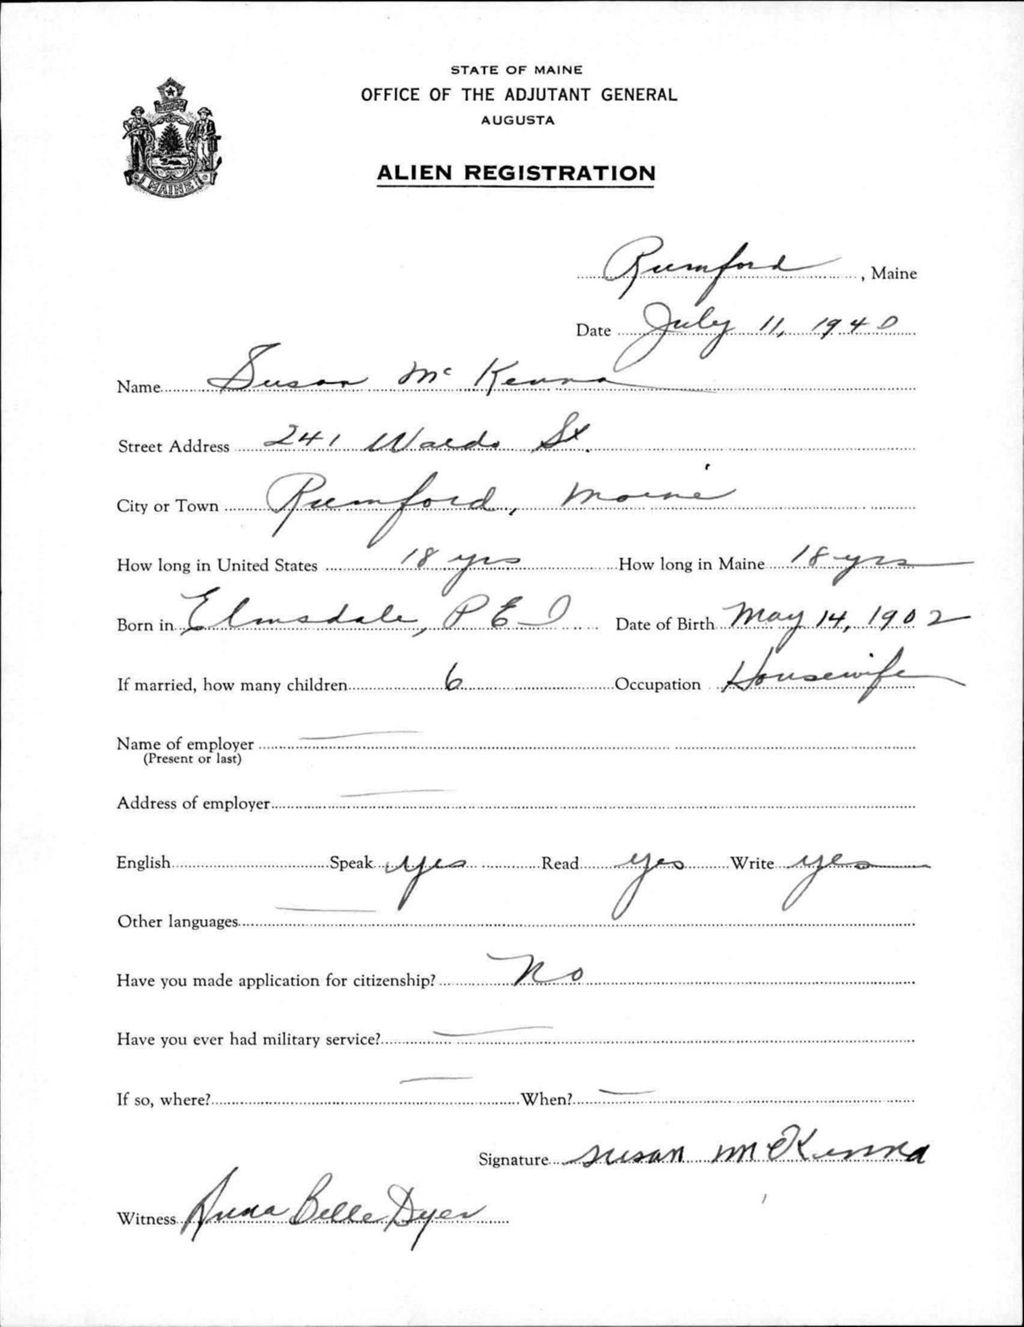 STATE OF MAINE
OFFICE OF THE ADJUTANT GENERAL
AUGUSTA
ALIEN REGISTRATION
MAINE
Rumford, Maine
Date July 11, 1940
Name Susan McKenna
Street Address 241 Waldo St.
City or Town Rumford, Maine
How long in United States 18 yrs How long in Maine 18 yrs
Born in Elmsdale, P E I Date of Birth May 14, 1902
If married, how many children 6 Occupation Housewife
Name of employer —
(Present or last)
Address of employer —
English Speak yes Read yes Write yes
Other languages —
Have you made application for citizenship? No
Have you ever had military service? —
If so, where? — When? —
Signature Susan McKenna
Witness Anna Belle Dyer